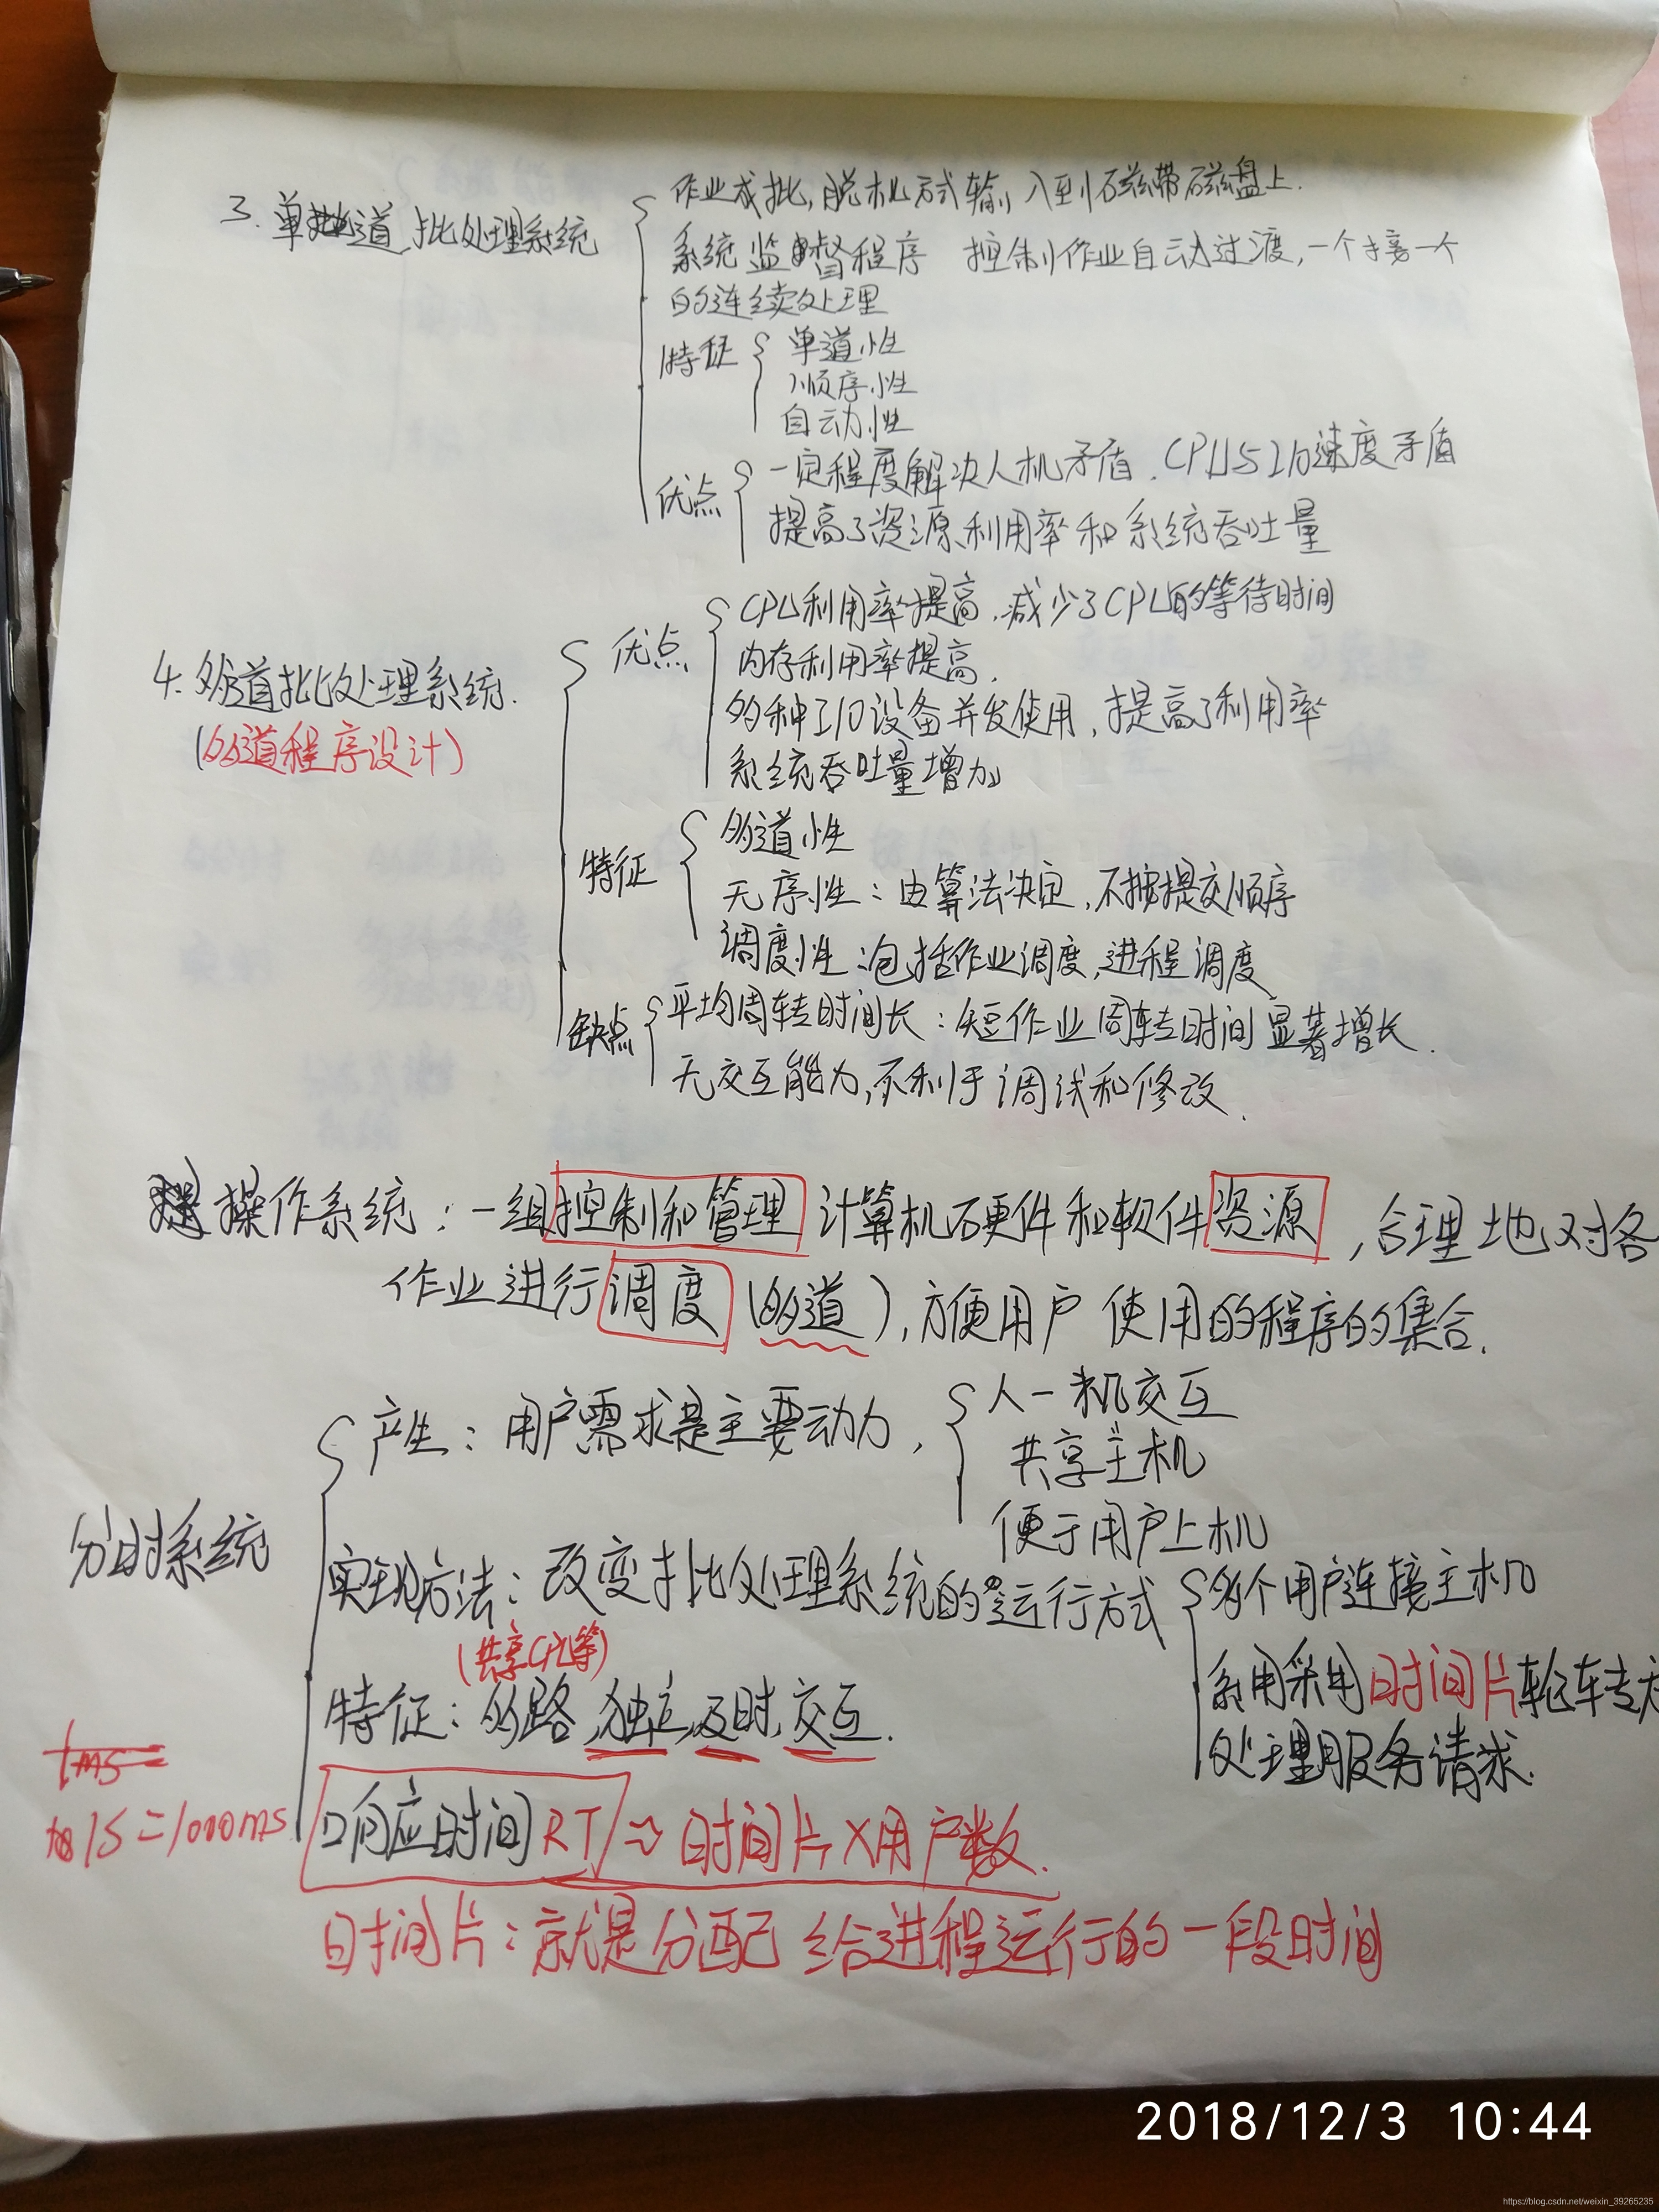 3. 单道批处理系统
作业成批,脱机方式输入到磁带磁盘上.
系统监督程序 控制作业自动过渡,一个接一个
的连续处理
特征
单道性
顺序性
自动性
优点
一定程度解决人机矛盾.CPU与I/O速度矛盾
提高了资源利用率和系统吞吐量
4. 多道批处理系统.
(多道程序设计)
优点
CPU利用率提高.减少了CPU的等待时间
内存利用率提高.
多种I/O设备并发使用,提高了利用率
系统吞吐量增加
特征
多道性
无序性:由算法决定,不按提交顺序
调度性:包括作业调度,进程调度
缺点
平均周转时间长:短作业周转时间显著增长.
无交互能力,不利于调试和修改.
操作系统:一组控制和管理计算机硬件和软件资源,合理地对各
作业进行调度(多道),方便用户使用的程序的集合.
分时系统
产生:用户需求是主要动力,
人一机交互
共享主机
便于用户上机
实现方法:改变批处理系统的运行方式
多个用户连接主机
采用时间片轮转
处理服务请求.
(共享CPU等)
特征:多路,独立,及时,交互.
1ms=
1S=1000ms
响应时间RT⇒时间片X用户数.
时间片:就是分配给进程运行的一段时间
2018/12/3 10:44
https://blog.csdn.net/weixin_39265235